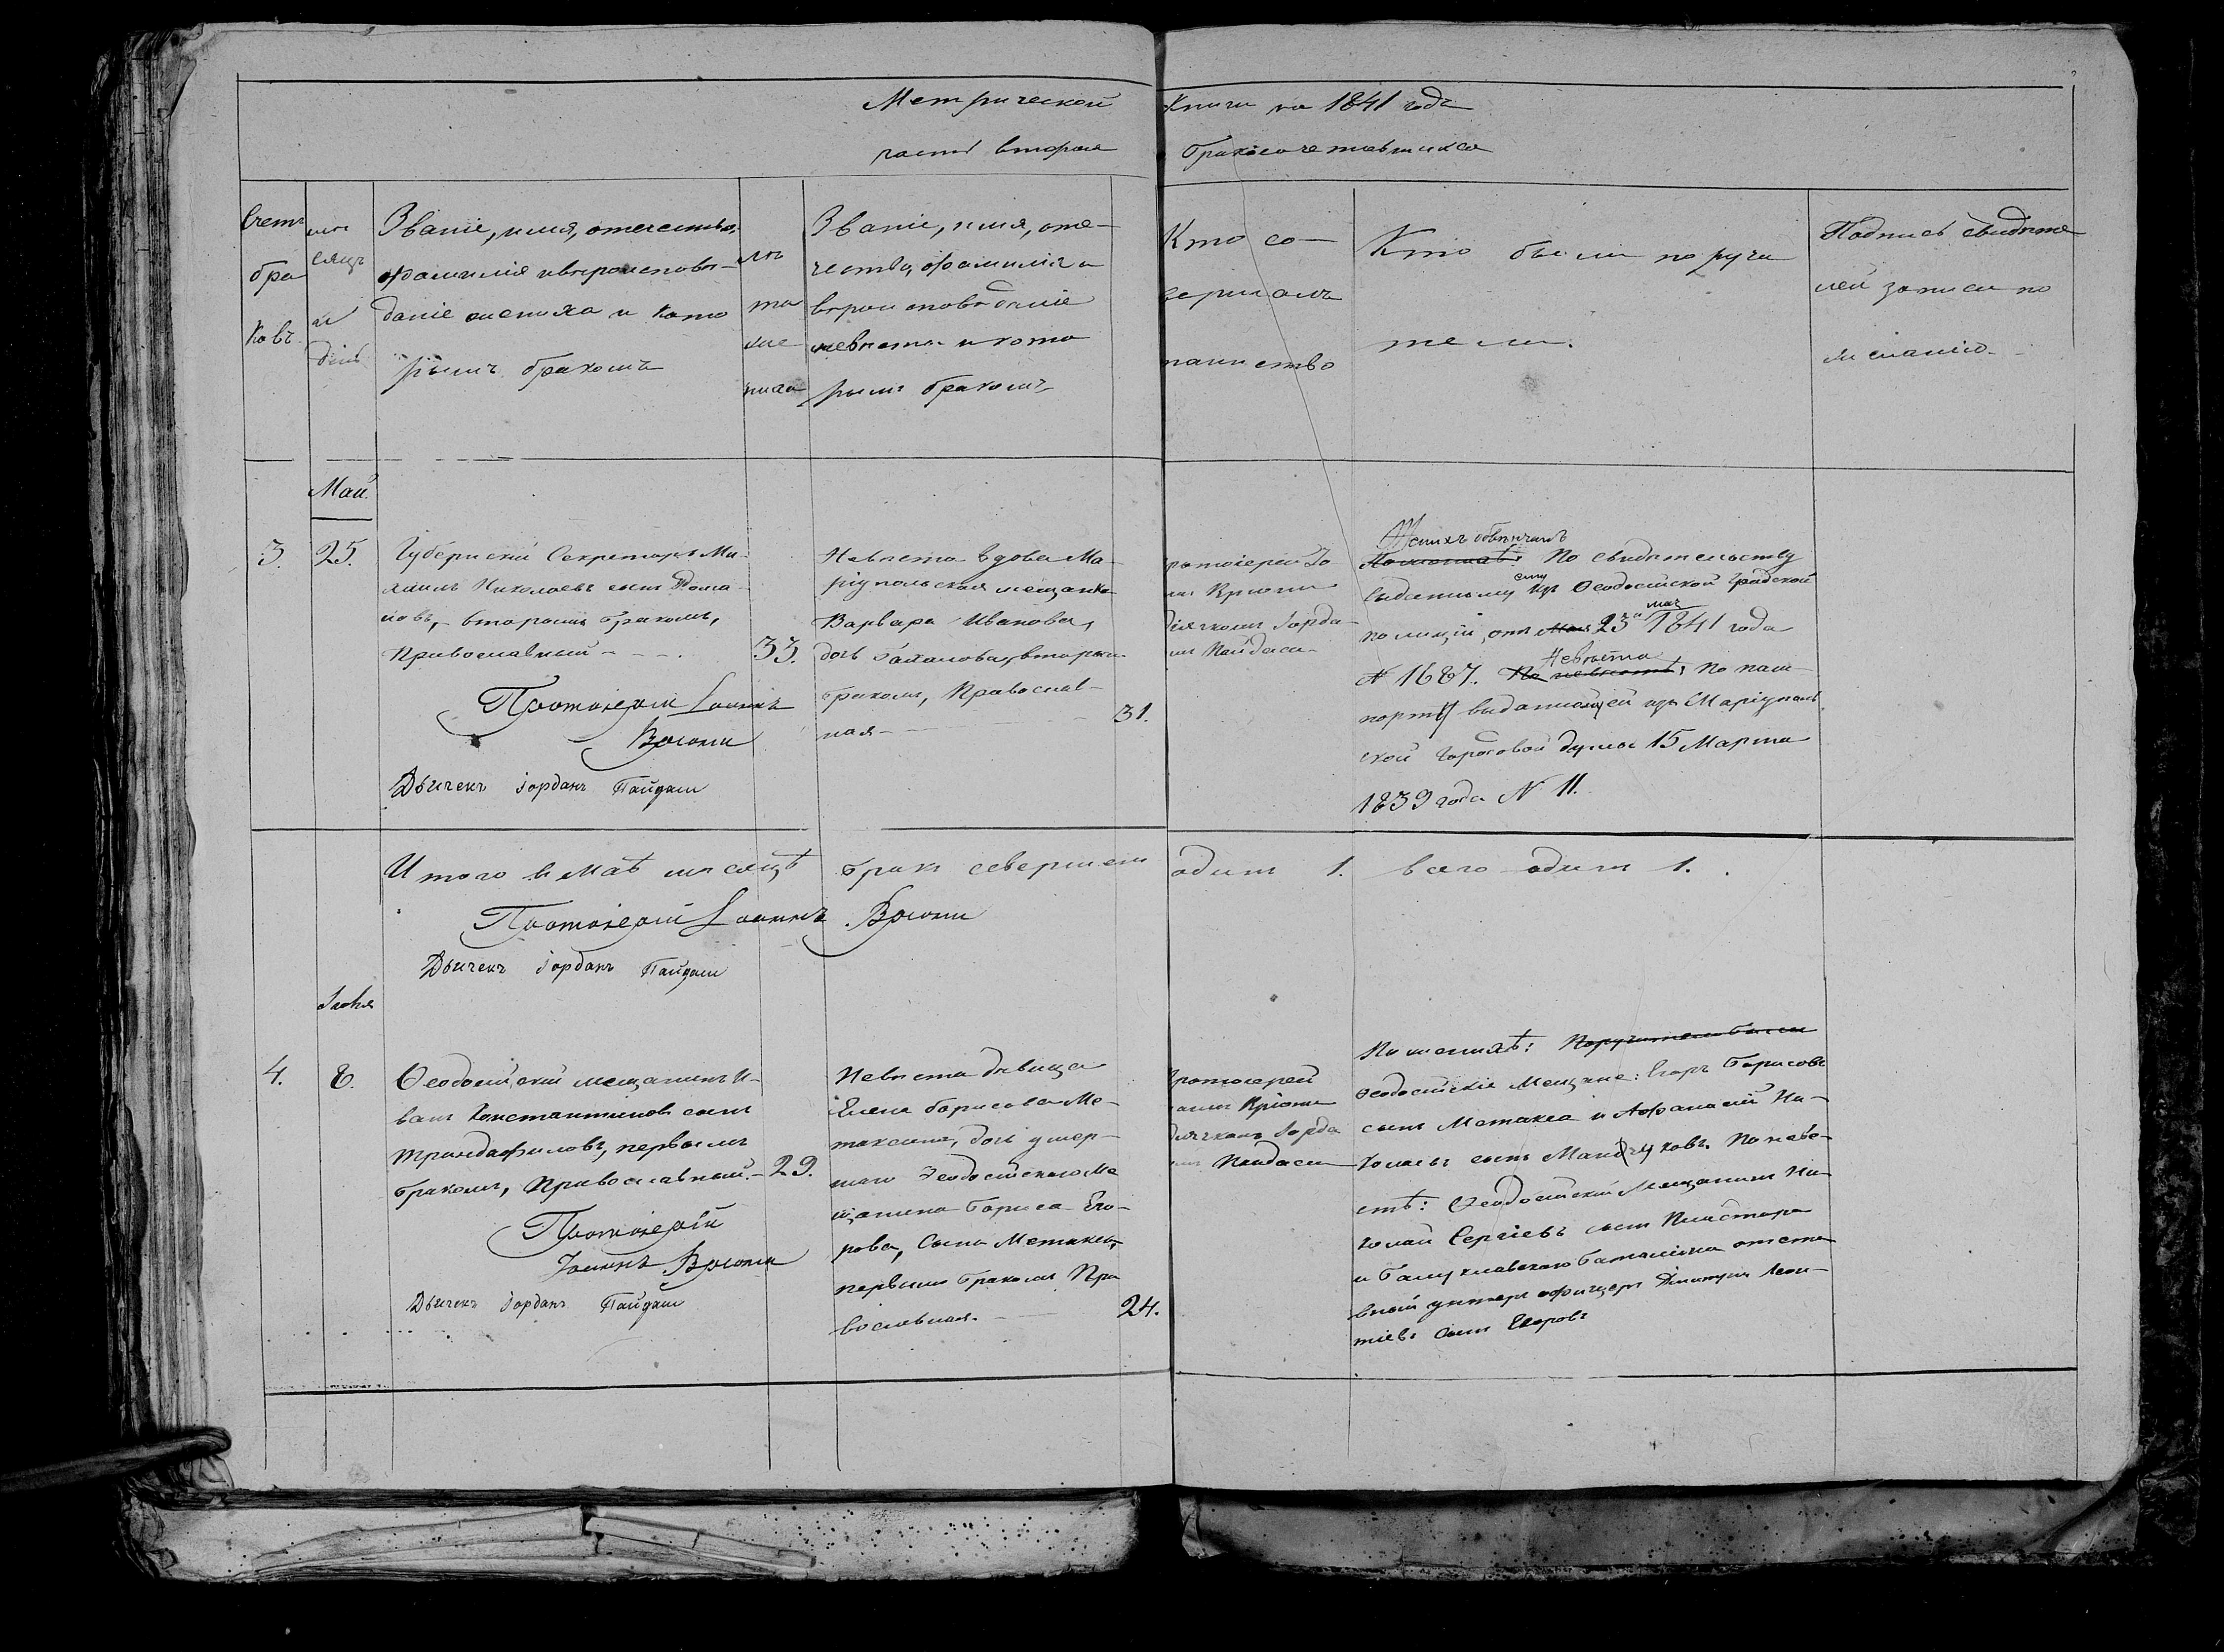 Метрической Книги на 1841 годъ
часть вторая бракосочетавшихся
Счетъ
бра
ковъ.
мѣ
сяцъ
и
день
Званіе, имя, отчество,
фамилія и вѣроисповѣ-
даніе жениха и кото
рымъ бракомъ
лѣ
та
же
ниха
Званіе, имя, оте-
чество, фамилія и
вѣроисповѣданіе
невѣсты и кото
рымъ бракомъ
Кто со-
вершалъ
таинство
Кто были поручи
тели.
Подпись свидѣте
лей записи по
желанію.
Май.
3.
25.
Губернскій Секретарь Ми-
хаилъ Николаевъ сынъ
новъ, вторымъ бракомъ,
православный
33.
Протоіерей Іоаннъ
Дьячекъ Іорданъ Пайдаси
Невѣста вдова Ма-
ріупольская мещанка
Варвара Иванова,
дочь вторым
бракомъ, Православ-
ная-
31.
протоіерей Іо
Дьячкомъ Іорда-
Пайдаси
Женихъ обвѣнчанъ
По свидѣтельству
ему
выданному изъ Ѳеодосійской градской
мая
полиціи, отъ 23го 1841 года
Невѣста
N 1687. По паш-
порту выданной ей изъ Маріуполь
ской городовой думы 15 Марта
1839 года N 11.
Итого въ Маѣ мѣсяцѣ бракъ совершенъ одинъ 1. всего одинъ 1.
Протоіерей Іоаннъ
Дьячекъ Іорданъ Пайдаси
Іюня
4.
8.
Ѳеодосійскій мещанинъ И-
ванъ Константиновъ сынъ
Трандафиловъ, первымъ
бракомъ, Православный.
29.
Протоіерей
Іоаннъ
Дьячекъ Іорданъ Пайдаси
Невѣста дѣвица
Елена Борисова Ме-
таксина, дочь умер-
шаго Ѳеодосійскаго Ме
щанина Бориса Его-
рова, сына Метакса,
первымъ бракомъ Пра
вославная.
24.
Протоіерей
Дьячкомъ Іорда
Пайдаси
По женихѣ: Поручители были
Ѳеодосійскіе Мещане: Егоръ Борисовъ
сынъ Метакса и Афанасій Ни-
колаевъ сынъ По невѣ-
стѣ: Ѳеодосійскій Мещанинъ Ни-
колай Сергіевъ сынъ
и Балуклавскаго баталіона отста
вный унтеръ офицеръ Димитрій Леон-
тіевъ сынъ Егоровъ